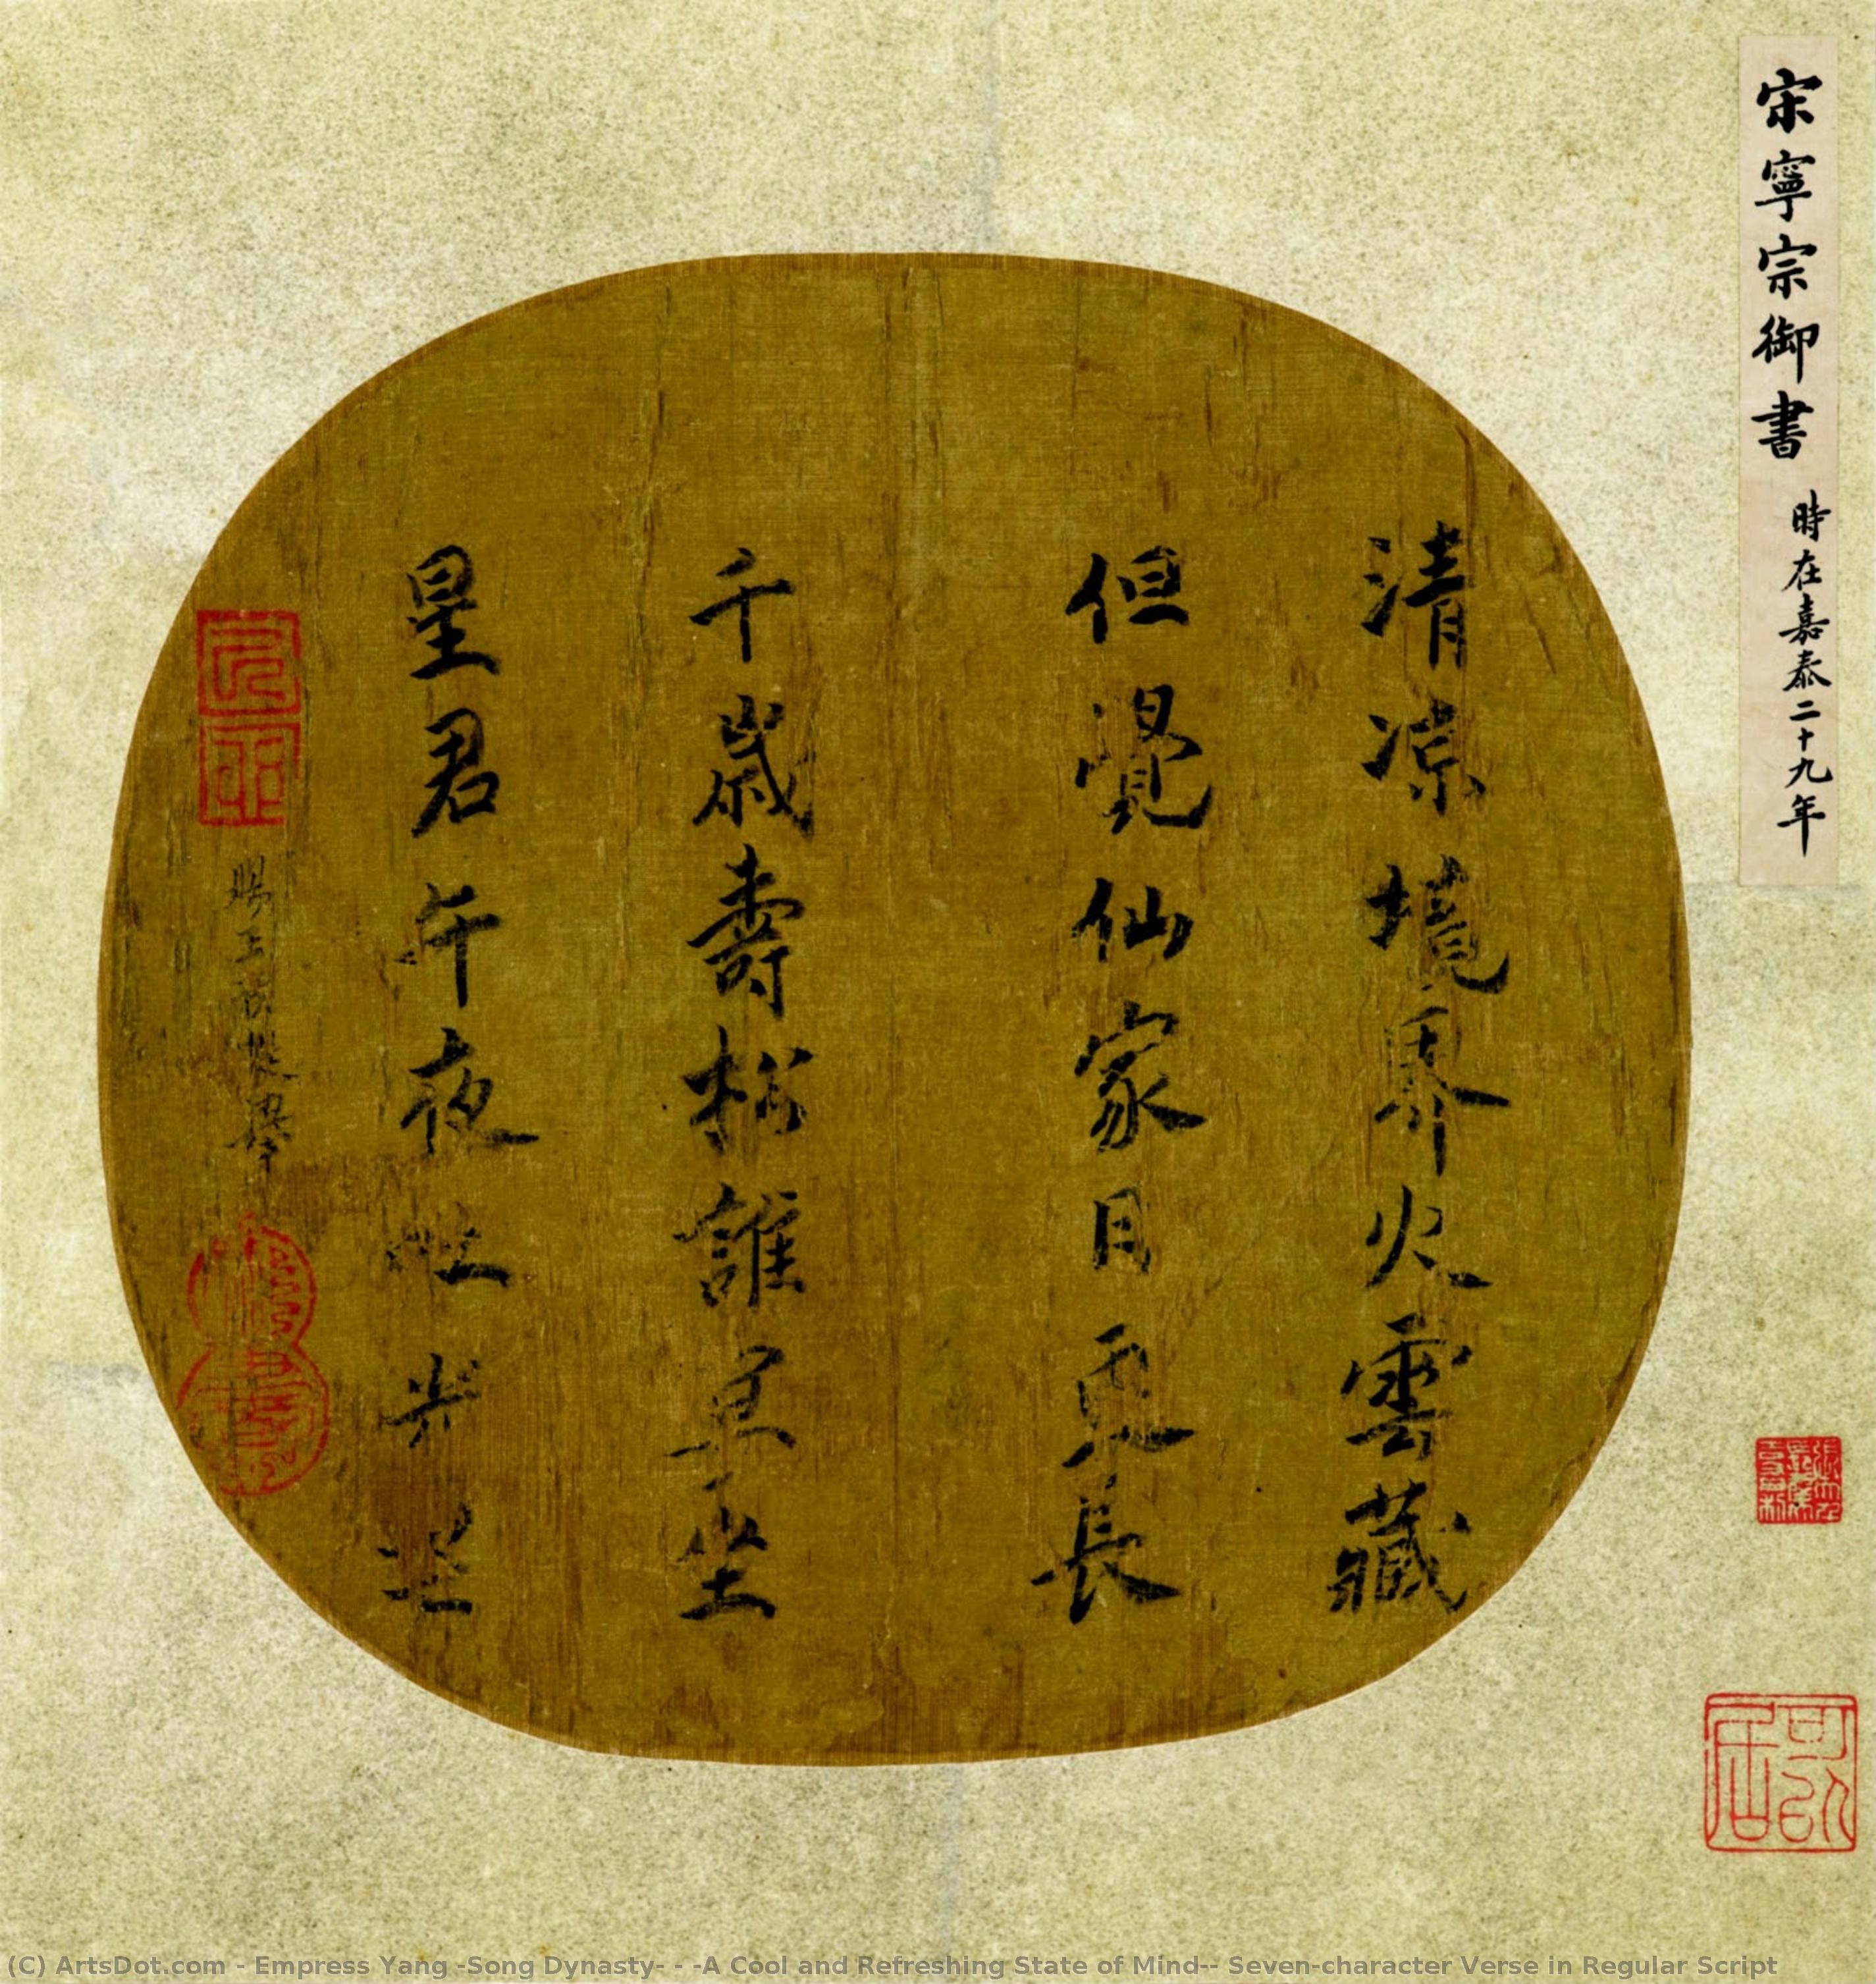 宋寧宗御書 時在嘉泰二十九年
清凉境界火雲藏
但覺仙家日更長
千歲壽松誰坐
星君午夜吐光芒
賜王都提舉
(C) ArtsDot.com - Empress Yang -Song Dynasty- - -A Cool and Refreshing State of Mind-- Seven-character Verse in Regular Script